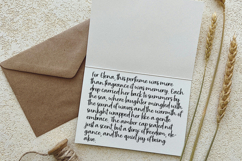 For Elena, this perfume was more
than fragrance it was memory. Each
drop carried her back to summers by
the sea, where laughter mingled with
the sound of waves and the warmth of
sunlight wrapped her like a gentle
embrace. The amber cap sealed not
just a scent but a story of freedom, ele-
gance, and the quiet joy of being
alive.